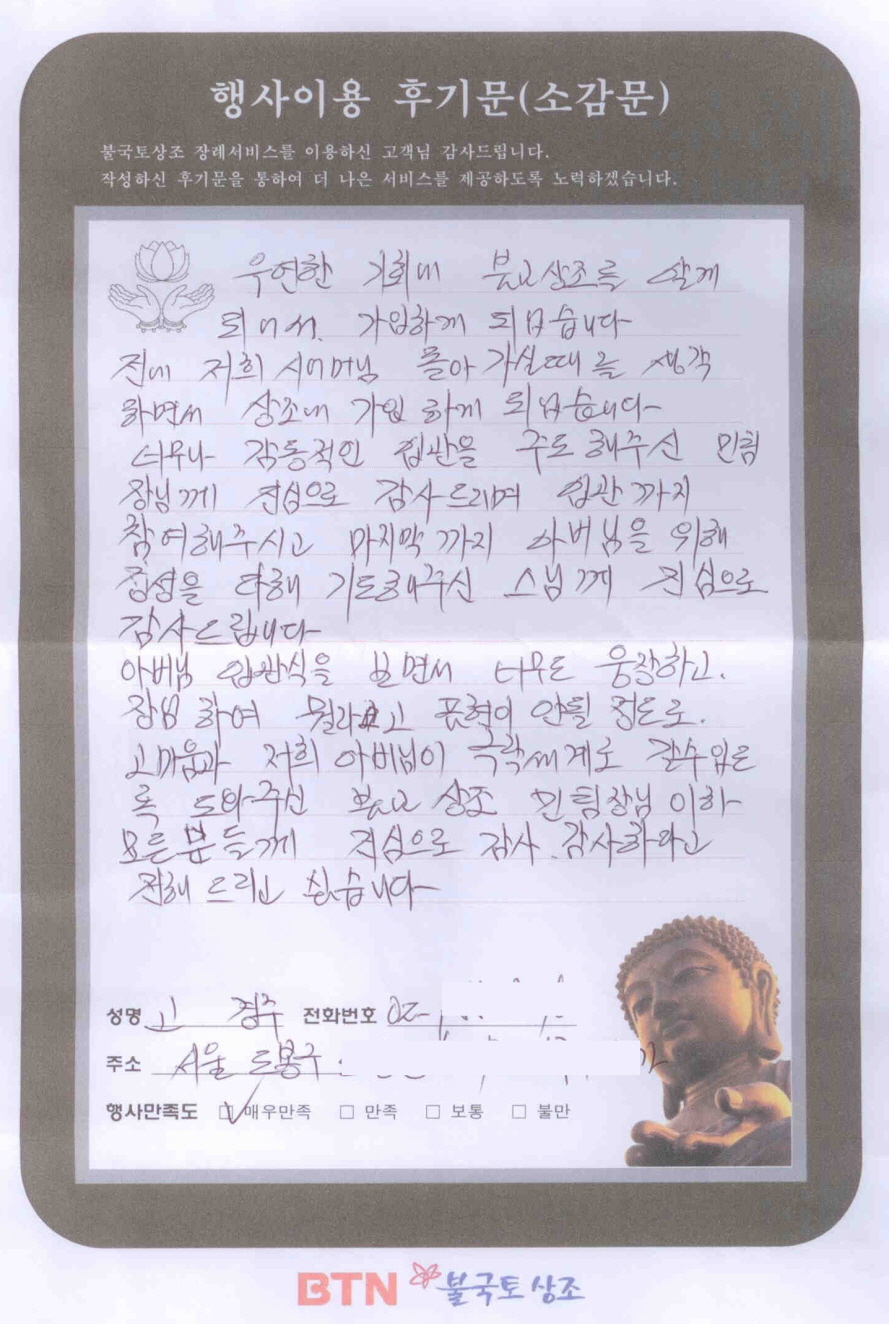 행사이용 후기문(소감문)
불국토상조 장례서비스를 이용하신 고객님 감사드립니다.
작성하신 후기문을 통하여 더 나은 서비스를 제공하도록 노력하겠습니다.
우연한 기회에 불교상조를 알게
되어서. 가입하게 되었습니다
전에 저희 시어머님 돌아 가실때를 생각
하면서 상조에 가입 하게 되었습니다
너무나 감동적인 입관을 주도 해주신 민팀
장님께 진심으로 감사드리며 입관까지
참여해주시고 마지막 까지 아버님을 위해
정성을 다해 기도해주신 스님께 진심으로
감사드립니다
아버님 입관식을 보면서 너무도 웅장하고.
장엄 하여 뭐라고 표현이 안될 정도로.
고마움과 저희 아버님이 극락세계로 갈수있도
록 도와주신 불교 상조 민팀장님 이하
모든분들께 진심으로 감사.감사하다고
전해 드리고 싶습니다
성명 고 정주 전화번호 02-
주소 서울 도봉구
행사만족도 ☑ 매우만족 □ 만족 □ 보통 □ 불만
BTN 불국토상조